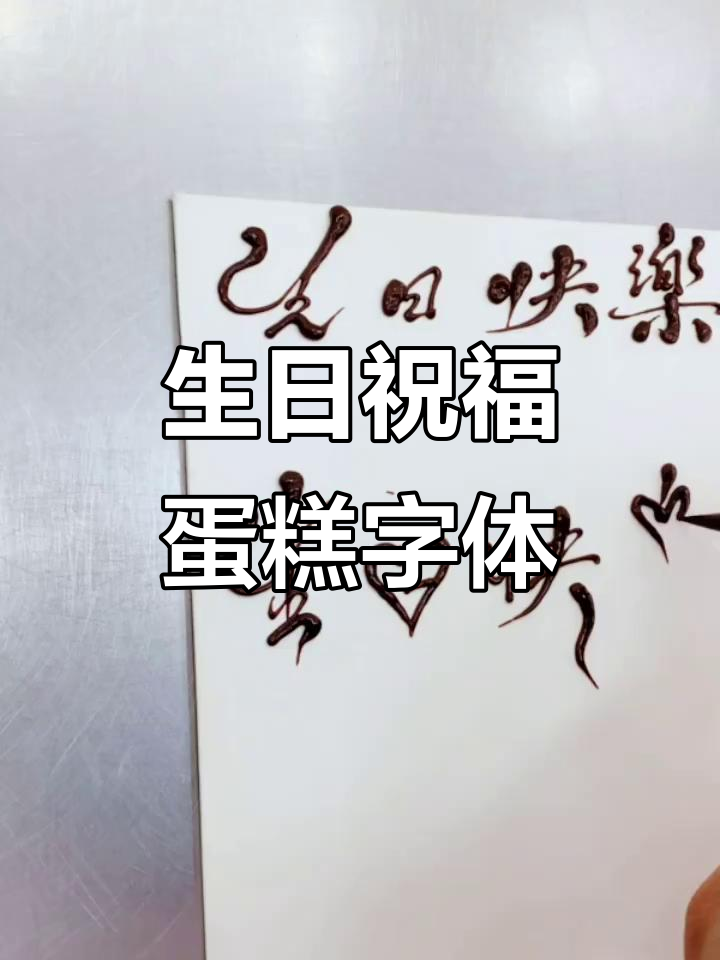 生日快樂
生日祝福
蛋糕字体